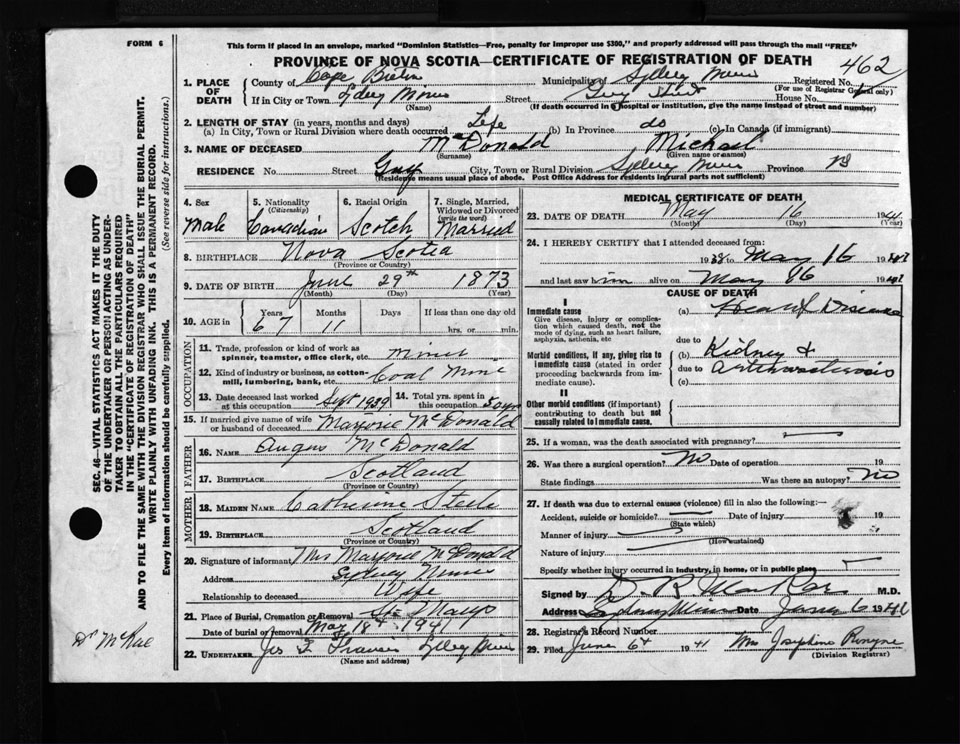 FORM 6
This form if placed in an envelope, marked "Dominion Statistics—Free, penalty for improper use $300," and properly addressed will pass through the mail "FREE"
PROVINCE OF NOVA SCOTIA—CERTIFICATE OF REGISTRATION OF DEATH
462
1. PLACE OF DEATH
County of Cape Breton Municipality of Sydney Mines Registered No.
(For use of Registrar General only)
If in City or Town Sydney Mines Street House No.
(Name) (If death occurred in hospital or institution, give the name instead of street and number)
2. LENGTH OF STAY (in years, months and days)
(a) In City, Town or Rural Division where death occurred Life (b) In Province do (c) In Canada (if immigrant)
3. NAME OF DECEASED McDonald Michael
(Surname) (Given name or names)
RESIDENCE No. Street City, Town or Rural Division Sydney Mines Province NS
(Residence means usual place of abode. Post Office Address for residents in rural parts not sufficient)
4. Sex Male
5. Nationality (Citizenship) Canadian
6. Racial Origin Scotch
7. Single, Married, Widowed or Divorced (write the word) Married
8. BIRTHPLACE Nova Scotia
(Province or Country)
9. DATE OF BIRTH June 29th 1873
(Month) (Day) (Year)
10. AGE in Years Months Days If less than one day old
67 11 hrs. or min.
OCCUPATION
11. Trade, profession or kind of work as spinner, teamster, office clerk, etc. Miner
12. Kind of industry or business, as cotton-mill, lumbering, bank, etc. Coal Mine
13. Date deceased last worked at this occupation Sept 1939
14. Total yrs. spent in this occupation 50 yrs
15. If married give name of wife or husband of deceased Marjorie McDonald
FATHER
16. NAME Angus McDonald
17. BIRTHPLACE Scotland
(Province or Country)
MOTHER
18. MAIDEN NAME Catherine Steele
19. BIRTHPLACE Scotland
(Province or Country)
20. Signature of informant Mrs Marjorie McDonald
Address Sydney Mines
Relationship to deceased Wife
21. Place of Burial, Cremation or Removal St. Marys
Date of burial or removal May 18th 1941
22. UNDERTAKER Jos F Sydney Mines
(Name and address)
MEDICAL CERTIFICATE OF DEATH
23. DATE OF DEATH May 16 1941
(Month) (Day) (Year)
24. I HEREBY CERTIFY that I attended deceased from:
1938 to May 16 1941
and last saw him alive on May 16 1941
CAUSE OF DEATH
I
Immediate cause
Give disease, injury or complication which caused death, not the mode of dying, such as heart failure, asphyxia, asthenia, etc
(a) Heart Disease
due to
Morbid conditions, if any, giving rise to immediate cause (stated in order proceeding backwards from immediate cause).
(b) Kidney &
due to arteriosclerosis
(c)
II
Other morbid conditions (if important) contributing to death but not causally related to immediate cause.
25. If a woman, was the death associated with pregnancy?
26. Was there a surgical operation? No Date of operation 19
State findings Was there an autopsy? No
27. If death was due to external causes (violence) fill in also the following:—
Accident, suicide or homicide? Date of injury 19
(State which)
Manner of injury
(How sustained)
Nature of injury
Specify whether injury occurred in industry, in home, or in public place
Signed by M.D.
Address Sydney Mines Date June 6 1941
28. Registrar's Record Number
29. Filed June 6th 1941 Mrs Josephine
(Division Registrar)
SEC. 46—VITAL STATISTICS ACT MAKES IT THE DUTY
OF THE UNDERTAKER OR PERSON ACTING AS UNDER-
TAKER TO OBTAIN ALL THE PARTICULARS REQUIRED
IN THE "CERTIFICATE OF REGISTRATION OF DEATH"
AND TO FILE THE SAME WITH THE DIVISION REGISTRAR WHO SHALL ISSUE THE BURIAL PERMIT.
WRITE PLAINLY WITH UNFADING INK. THIS IS A PERMANENT RECORD.
Every item of information should be carefully supplied. (See reverse side for instructions.)
Dr McRae